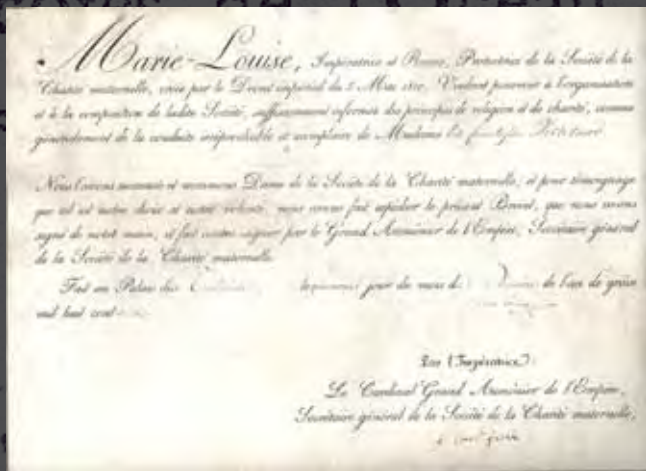 Marie-Louise, Impératrice et Reine, Protectrice de la Société de la
Charité maternelle, créée par le Décret impérial du 5 Mai 1810. Voulant pourvoir à l'organisation
et à la composition de ladite Société, suffisamment informée des principes de religion et de charité, comme
généralement de la conduite irréprochable et exemplaire de Madame
Nous l'avons nommée et nommons Dame de la Société de la Charité maternelle; et pour témoignage
que tel est notre choix et notre volonté, nous avons fait expédier le présent Brevet, que nous avons
signé de notre main, et fait contre-signer par le Grand Aumônier de l'Empire, Secrétaire général
de la Société de la Charité maternelle.
Fait au Palais des jour du mois de de l'an de grâce
mil huit cent
Par l'Impératrice:
Le Cardinal Grand Aumônier de l'Empire,
Secrétaire général de la Société de la Charité maternelle,